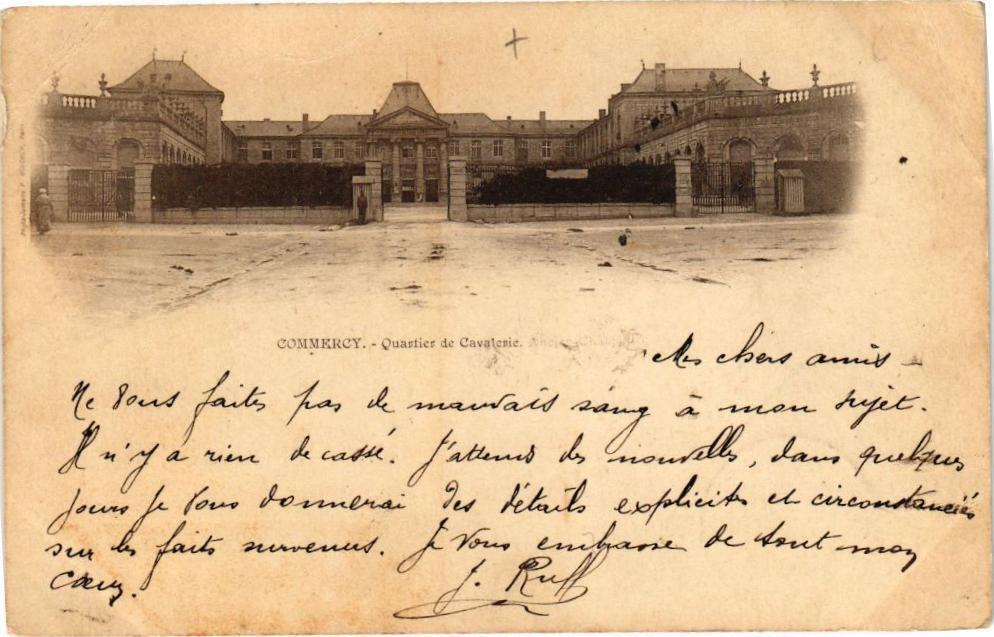 COMMERCY. - Quartier de Cavalerie.
Mes chers amis -
Ne vous faites pas de mauvais sang à mon sujet.
Il n'y a rien de cassé. J'attends des nouvelles, dans quelques
jours je vous donnerai des détails explicites et circonstanciés
sur les faits survenus. Je vous embrasse de tout mon
cœur.
J. Ruff